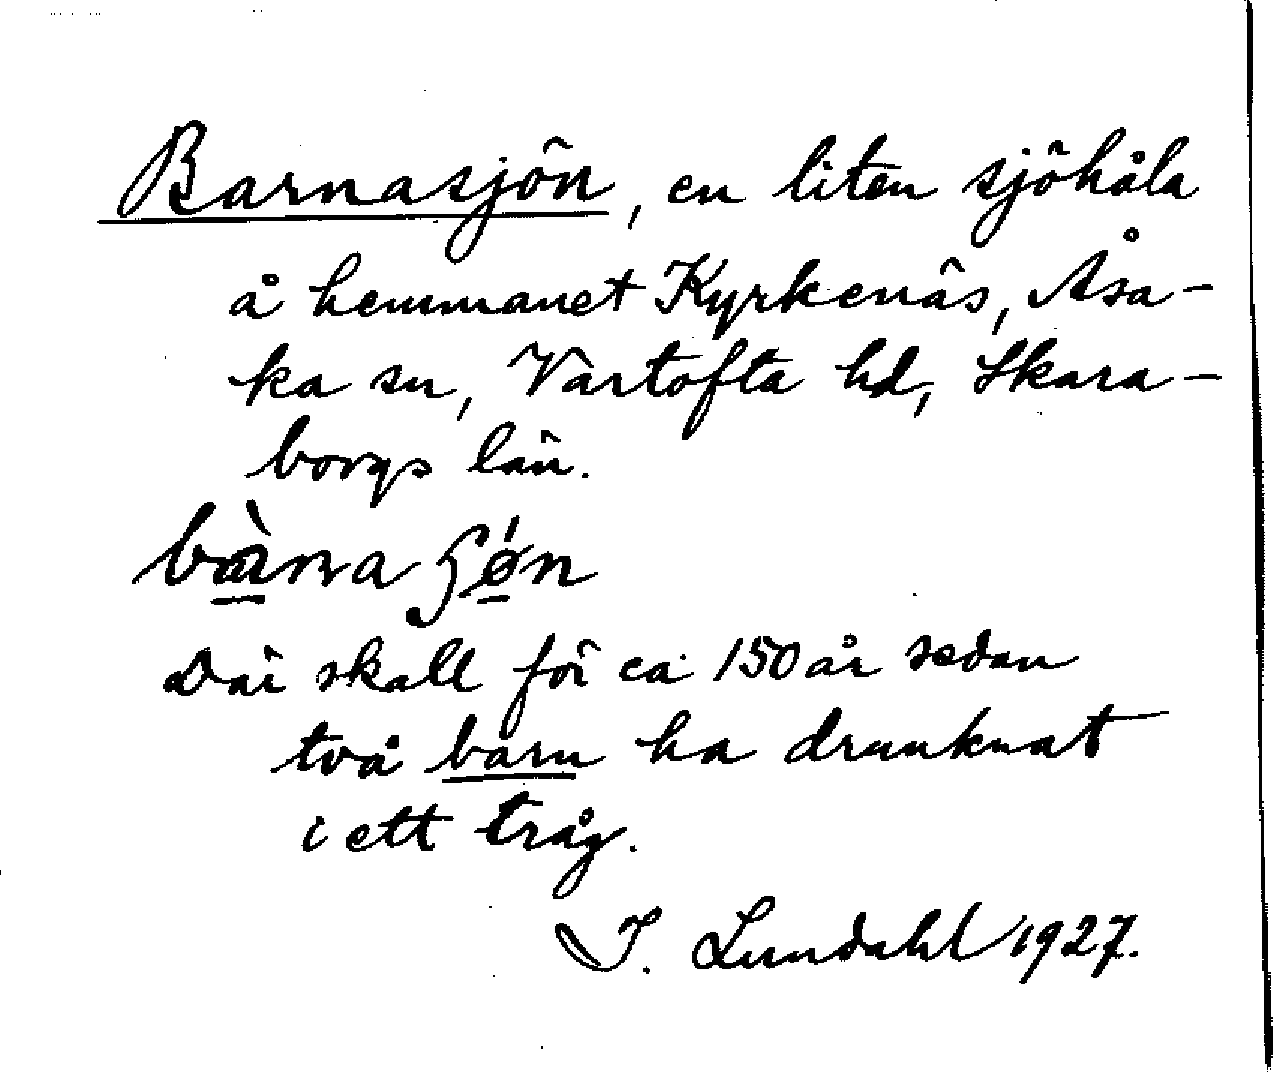 Barnasjön, en liten sjöhåla
å hemmanet Kyrkenäs, Åsa-
ka sn, Vartofta hd, Skara-
borgs län.
Där skall för ca 150 år sedan
två barn ha drunknat
i ett tråg.
I. Lundahl 1927.